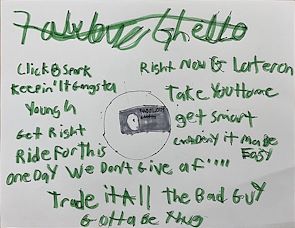 Fabulous Ghetto
Click & Spark
Right Now & Lateron
Keepin' It Gangsta
Take You Home
Young G
get smart
FABOLOUS
Get Right
can't Deny it Ma Be
Easy
Ride For this
one Day We Don't Give a F'''''
Trade it All The Bad Guy
Gotta Be Thug